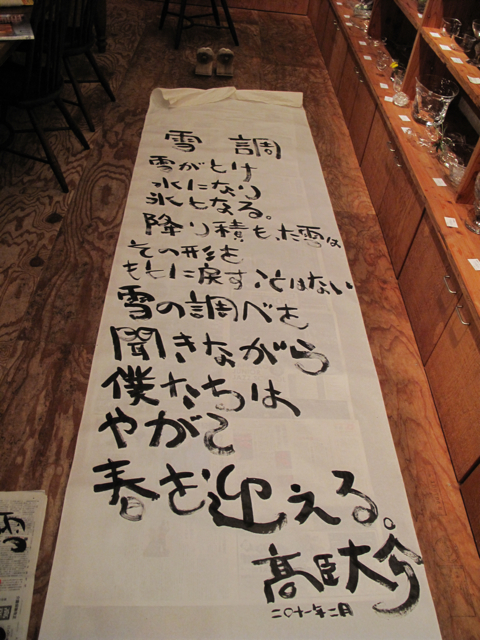 雪 調
雪がとけ
水になり
氷となる。
降り積もった雪は
その形を
もとに戻すことはない
雪の調べを
聞きながら
僕たちは
やがて
春を迎える。
高臣大介
二〇十一年二月
雪